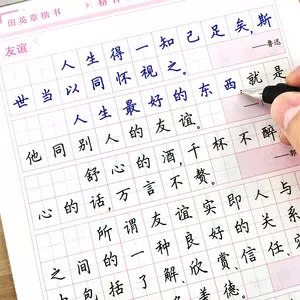 田英章楷书
友谊
人生得一知己足矣,斯
世当以同怀视之。
——鲁迅
人生最好的东西,就是
他同别人的友谊。
舒心的酒,千杯不醉
心的话,万言不赘。
所谓友谊实即人与
之间的一种良好的关系
包括了解、欣赏、信任、